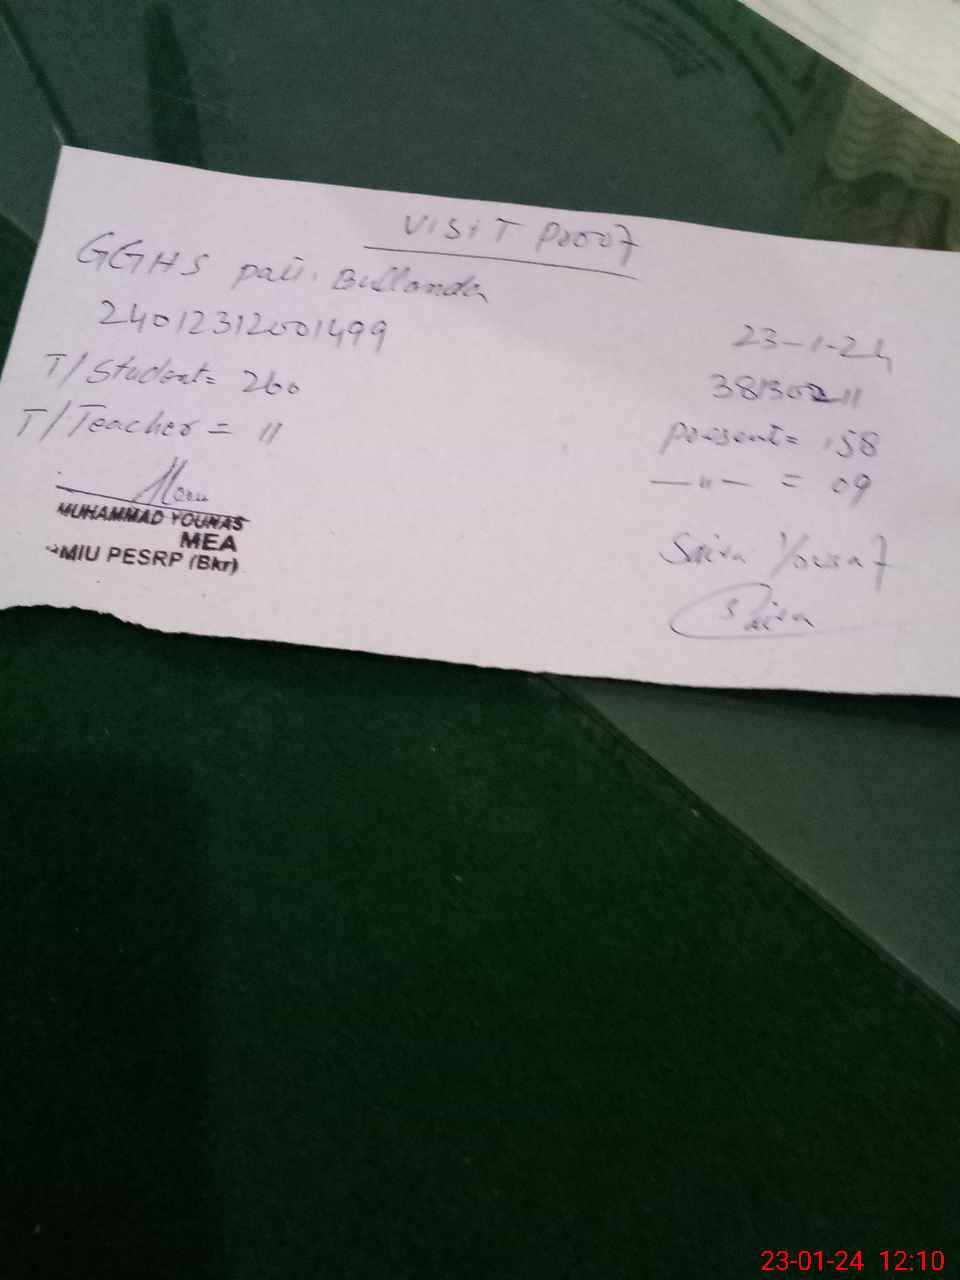 VISIT Proof
GGHS pati Bullanda
24012312001499
23-1-24
T/Student = 260
38130211
T/Teacher = 11
present = 158
—"— = 09
MUHAMMAD YOUNAS
MEA
MIU PESRP (Bkr)
Saira Yousaf
Saira
23-01-24 12:10